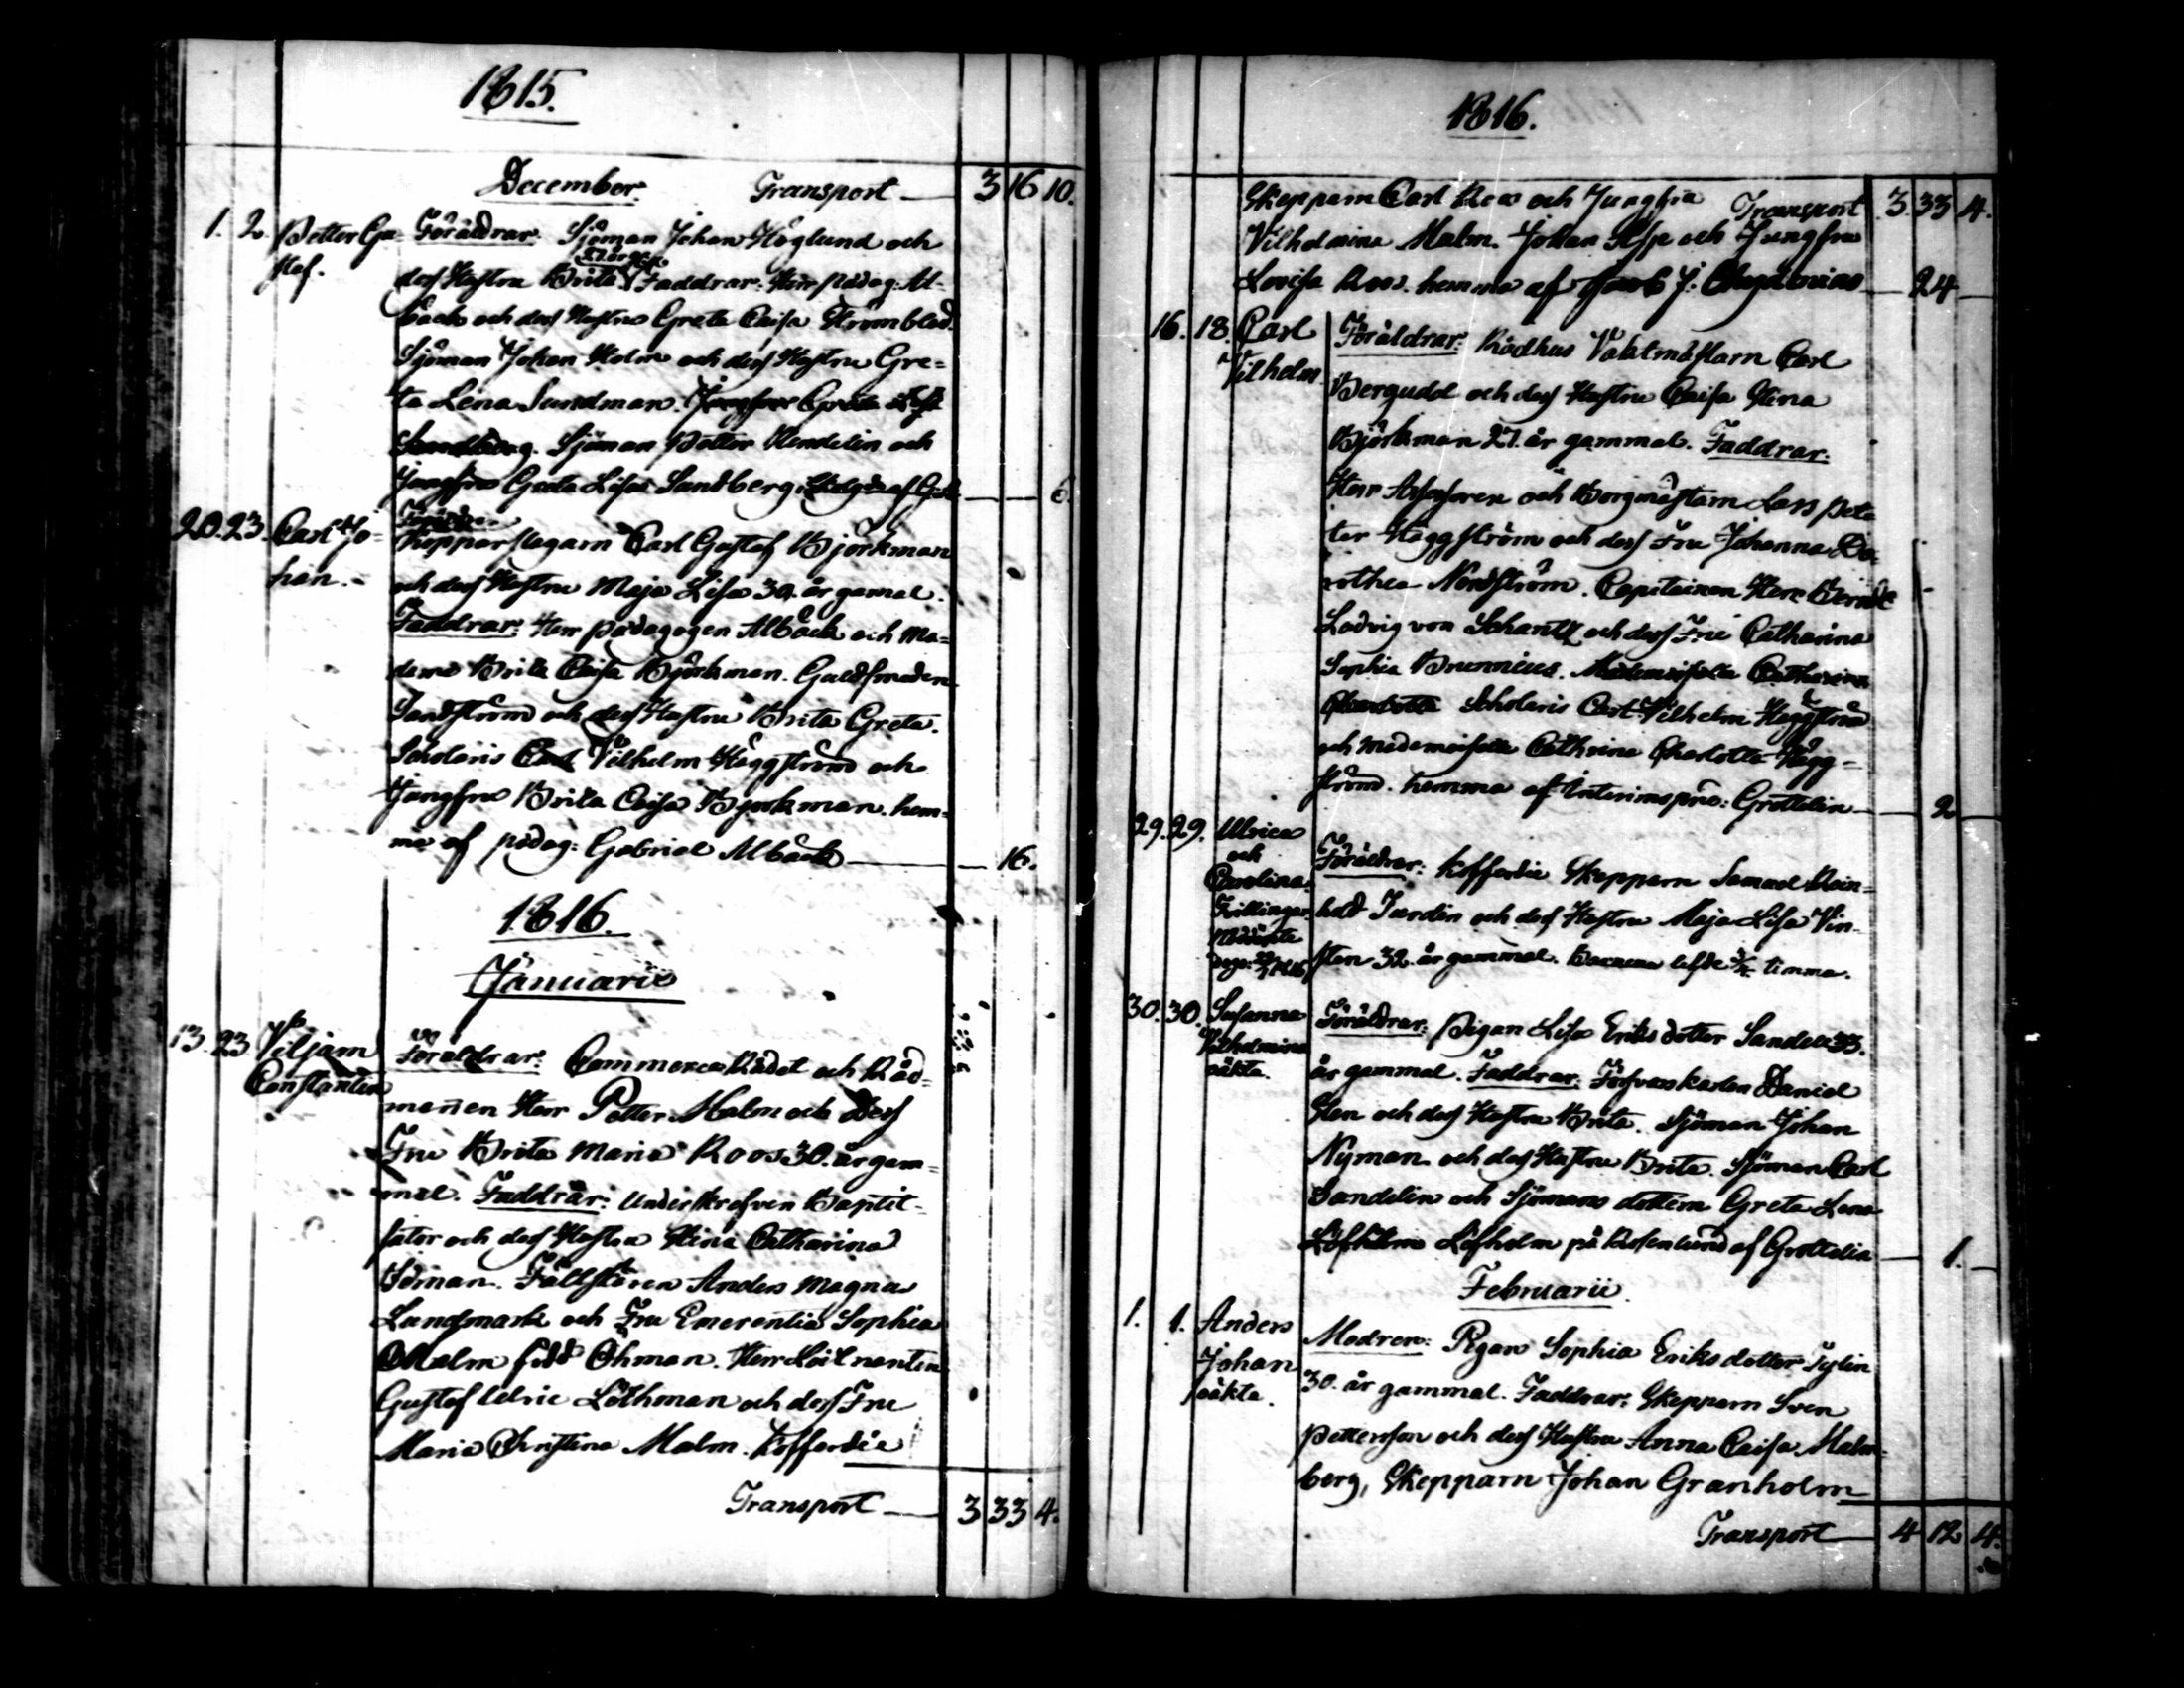 1815.
December. Transport — 3 16 10.
1. 2. Petter Gu- Föräldrar: Sjöman Johan Höglund och
staf. dess Hustru Brita Faddrar: Herr Pädag: Al-
bäck och dess Hustru Greta Caisa Strömblad.
Sjöman Johan Holm och dess Hustru Gre=
ta Lena Sundman. Jungfru Greta Lisa
Sandberg. Sjöman Petter Hendelin och
Jungfru Greta Lisa Sandberg. — 6.
20. 23. Carl Jo- Föräldrar
han. Kopparslagarn Carl Gustaf Björkman
och dess Hustru Maja Lisa 30. år gamal.
Faddrar: Herr Pädagogen Albäck och Ma-
dame Brita Caisa Björkman. Guldsmeden
Sandström och dess Hustru Brita Greta.
Scholaris Carl Vilhelm Häggström och
Jungfru Brita Caisa Bjorkman. hem-
ma af pädag: Gabriel Albäck — 16.
1816.
Januarii
13. 23. Viljam Föräldrar: Commerce Rådet och Råd-
Constantin mannen Herr Petter Malm och Dess
Fru Brita Maria Roos 30. år gam=
mal. Faddrar: Underskrefven Baptit-
sator och dess Hustru Stina Catharina
Idman. Fältskären Anders Magnus
Landsmark och Fru Emerentia Sophia
Malm född Öhman. Herr Löitnanten
Gustaf Ulric Löthman och dess Fru
Maria Christina Malm. Kofferdie
Transport — 3 33 4.
1816.
Skepparn Carl Roos och Jungfru Transport 3. 33 4.
Vilhelmina Malm. Johan Asp och Jungfru
Lovisa Roos. hemma af Jacob J: Chydenius — 24 —
16. 18. Carl Föräldrar: Rådhus Vaktmästarn Carl
Vilhelm Bergudd och dess Hustru Caisa Stina
Björkman 27. år gammal. Faddrar:
Herr Assessoren och Borgmästarn Lars Pet-
ter Häggström och dess Fru Johanna Do-
rothea Nordström. Capitainen Herr Berndt
Ludvig von Schantz och dess Fru Catharina
Sophia Brunnius. Mademoiselle Catharina
Charlotta Scholaris Carl Vilhelm Häggström
och Mademoiselle Cathrina Charlotta Hägg=
ström. hemma af Interimspre: Grottelin — 2
29. 29. Ulrica
och Föräldrar: Kofferdie Skepparn Samuel Rein-
Carolina.
Tvillingar. hold Jurdin och dess Hustru Maja Lisa Vin-
Nöddöpte
sten 32. år gammal. Barnena lefde timma.
30. 30. Susanna Föräldrar: Pigan Lisa Eriks dotter Sandell 33.
Vilhelmina
oäkta. år gammal. Faddrar: Försvarskarlen Daniel
Sten och dess Hustru Brita. Sjöman Johan
Nyman och dess Hustru Brita. Sjöman Carl
Sandelin och Sjömans dottern Greta Lena
Löfholm Löfholm på Rosenlund af Grottelin — 1. —
Februarii.
1. 1. Anders Modren: Pigan Sophia Eriks dotter
Johan 30. år gammal. Faddrar: Skepparn Sven
oäkta. Pettersson och dess Hustru Anna Caisa Malm-
berg, Skepparn Johan Granholm
Transport — 4 12 4.